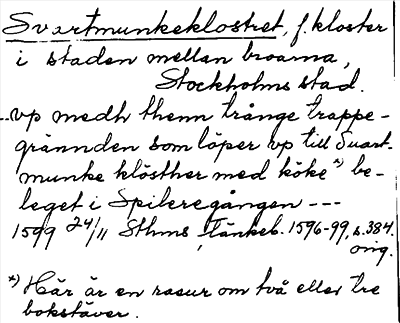 Svartmunkeklostret, f. kloster
i staden mellan broarna,
Stockholms stad.
--vp medh thenn trånge trappe-
grännden som löper vp till Suart-
munke klösther med köke *) be-
leget i Spileregången ---
1599 24/11 Sthms Tänkeb. 1596-99, s. 384.
orig.
*) Här är en rasur om två eller tre
bokstäver.